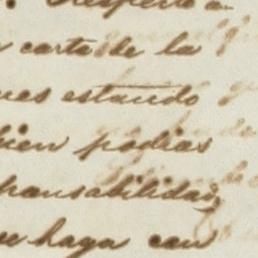 Respecto a
carta de la
estando
bien podias
ponsabilidad,
haga con